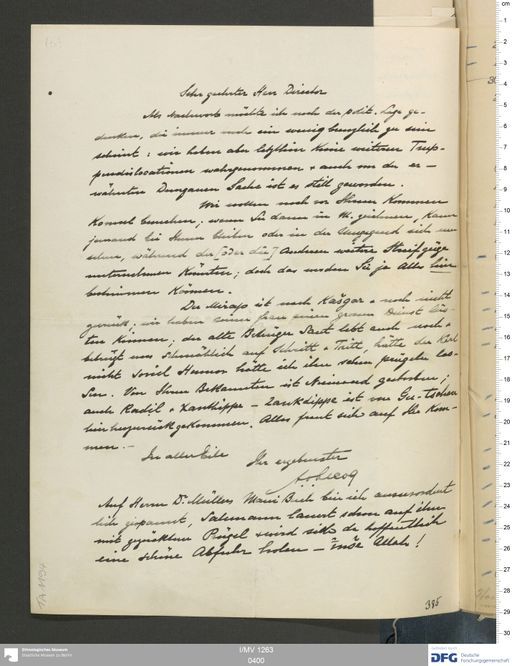 Sehr geehrter Herr Director
Als Nachwort möchte ich noch der polit. Lage ge-
denken, die immer noch ein wenig brenzlich zu sein
scheint: wir haben aber letzthin keine weiteren Trup-
pendislocationen wahrgenommen + auch um die er-
wähnten Dunganen Sache ist es still geworden.
Wir wollen noch vor Ihrem Kommen
Komul besuchen; wenn Sie dann in M. zeichnen, kann
jemand bei Ihnen bleiben oder in der Umgegend sich um-
sehen, während der [oder die] Anderen weitere Streifzüge
unternehmen könnten; doch das werden Sie ja Alles hier
bestimmen können.
Der Mirasp ist nach Kašgar + noch nicht
zurück; wir haben seiner frau einen grossen Dienst leis-
ten können; der alte Betrüger Saut lebt auch noch +
betrügt uns schmählich auf Schritt + Tritt, hätte der Kerl
nicht soviel Humor hätte ich ihn schon prügeln las-
sen. Von Ihren Bekannten ist Niemand gestorben;
auch Kadil + Xanthippe – Zankdippe ist von Gu-tschen
hierher zurückgekommen. Alles freut sich auf Ihr Kom-
men. –
In aller Eile Ihr ergebenster
AvLecoq
Auf Herrn Dr. Müllers Mani Buch bin ich ausserordent
lich gespannt, Salemann lauert schon auf ihn
mit gezücktem Prügel + wird sich da hoffentlich
eine schöne Abfuhr holen – inšē Allah!
385
TA 1194
I/MV 1263
0400
Ethnologisches Museum
Staatliche Museen zu Berlin
DFG Deutsche
Forschungsgemeinschaft